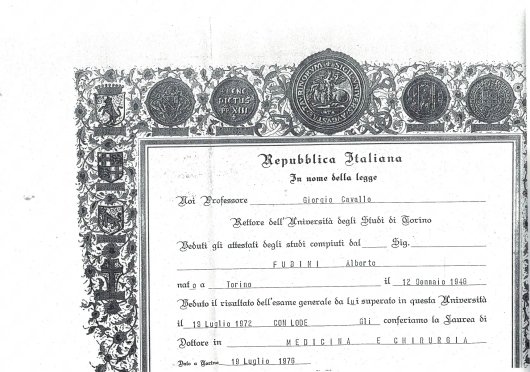 BENE
DICTUS
PP XIII
Repubblica Italiana
In nome della legge
Noi Professore Giorgio Cavallo
Rettore dell'Università degli Studi di Torino
Veduti gli attestati degli studi compiuti dal Sig.
FUBINI Alberto
nato a Torino il 12 Gennaio 1946
Veduto il risultato dell'esame generale da lui superato in questa Università
il 19 Luglio 1972 CON LODE Gli conferiamo la Laurea di
Dottore in MEDICINA E CHIRURGIA
Dato a Torino 19 Luglio 1976